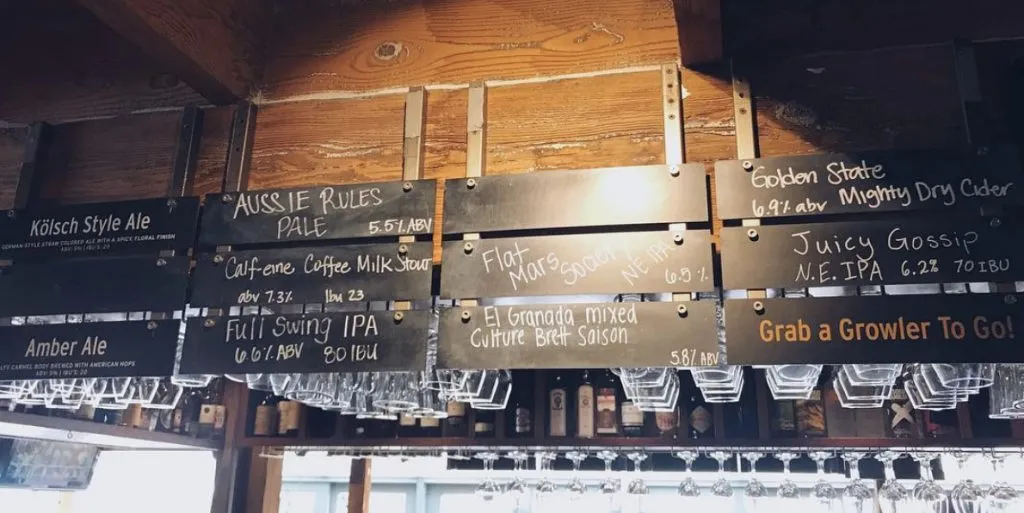 Kölsch Style Ale
GERMAN-STYLE STRAW COLORED ALE WITH A SPICY, FLORAL FINISH
ABV: 5% | IBU'S: 20
Amber Ale
BODY BREWED WITH AMERICAN HOPS
AUSSIE RULES
PALE 5.5% ABV
Calf-eine Coffee Milk Stout
abv 7.3% Ibu 23
Full Swing IPA
6.6% ABV 80 IBU
Flat
Mars Society
NE IPA
6.5%
El Granada mixed
Culture Brett Saison
5.8% ABV
Golden State
Mighty Dry Cider
6.9% abv
Juicy Gossip
N.E. IPA 6.2% 70 IBU
Grab a Growler To Go!